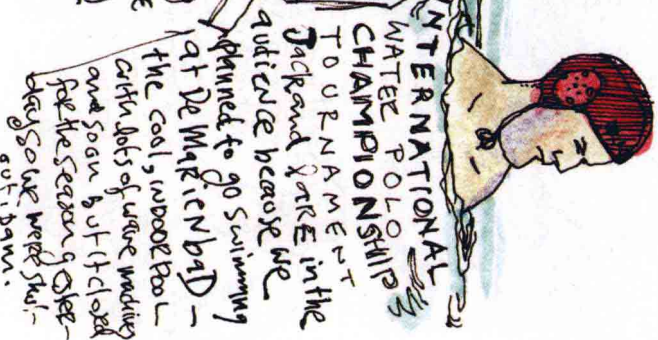 INTERNATIONAL
WATER POLO
CHAMPIONSHIP
TOURNAMENT
Jack and I ARE in the
audience because we
planned to go swimming
at De MaRieNbaD -
the cool, iNDOOR POOL
with lots of wave machines
and so on but it closed
for the season yester-
day so we were shut
out. Damn.